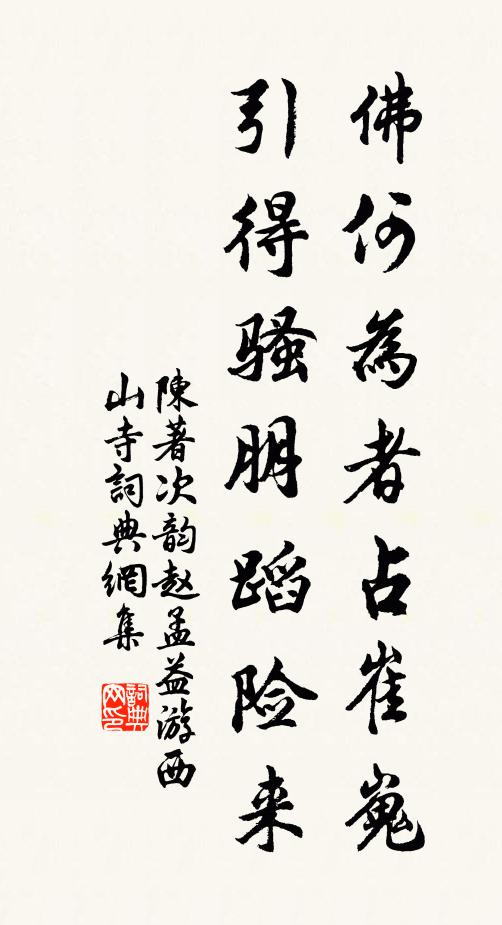 佛何為者占崔嵬
引得骚朋蹈险来
陳著次韵赵孟益游西
山寺詞典網集
詞典网印